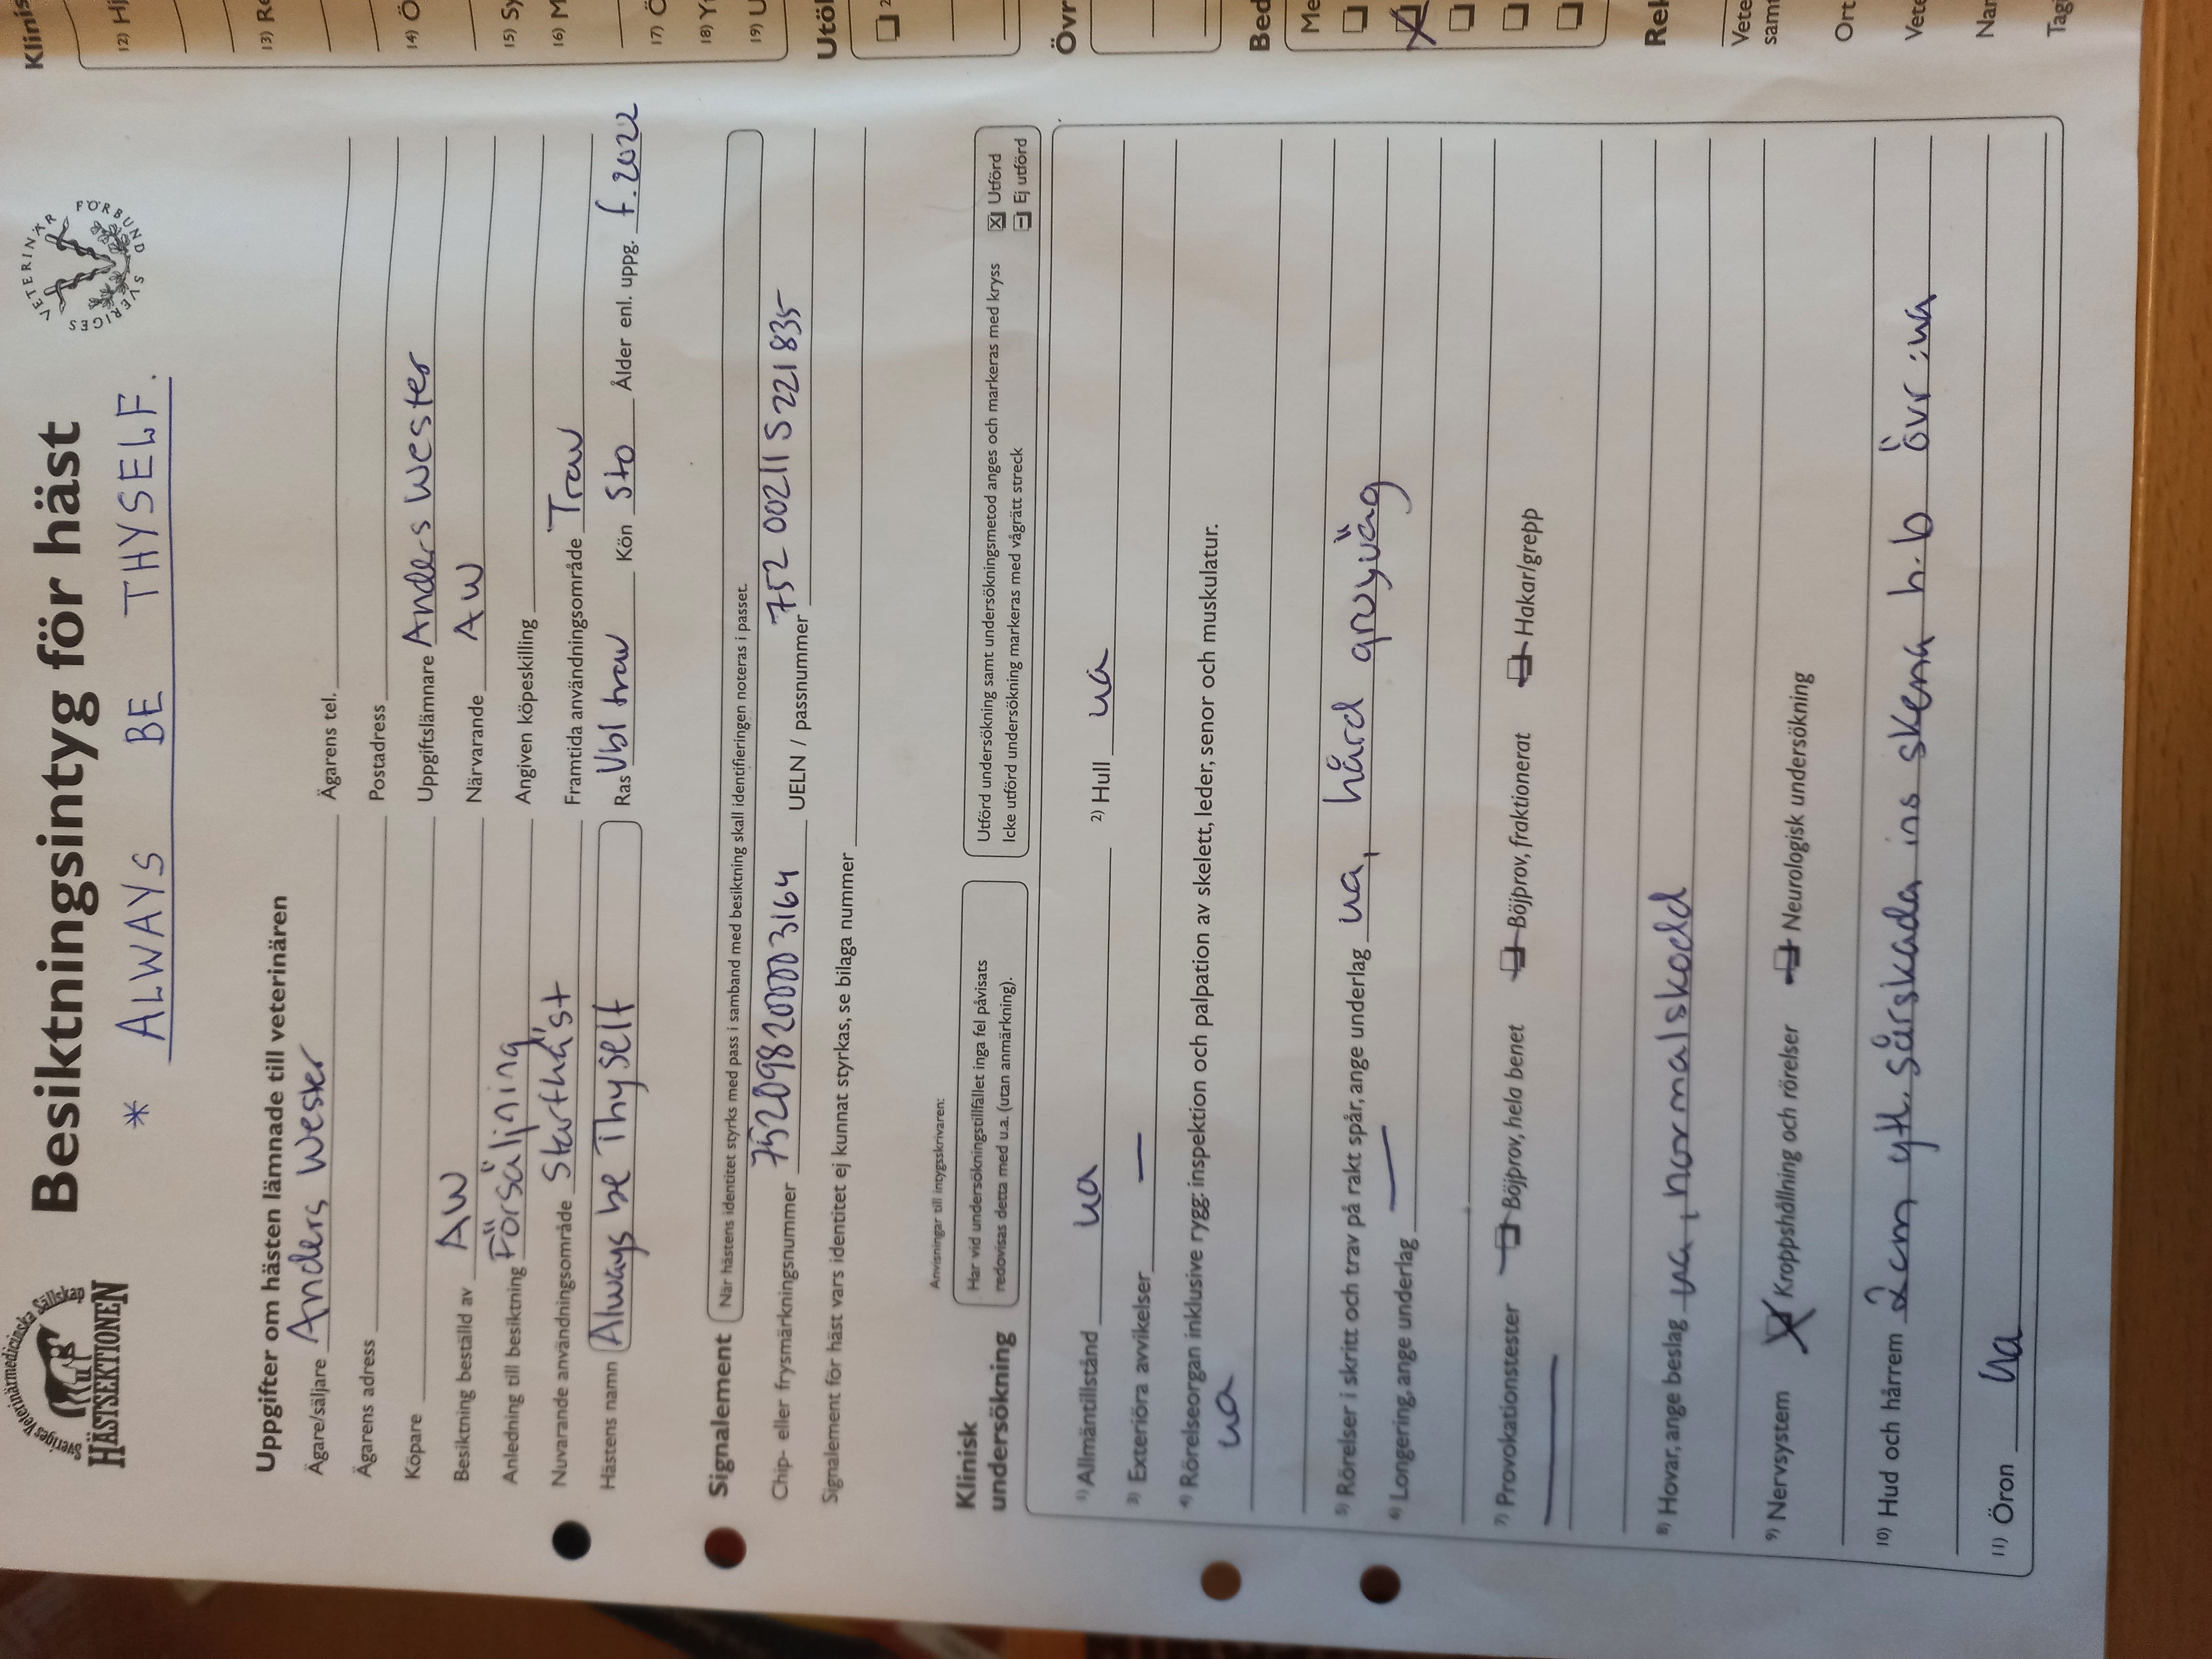 Sveriges Veterinärmedicinska Sällskap
HÄSTSEKTIONEN
Besiktningsintyg för häst
SVERIGES VETERINÄR FÖRBUND
* ALWAYS BE THYSELF.
Uppgifter om hästen lämnade till veterinären
Ägare/säljare Anders Wester Ägarens tel.
Ägarens adress Postadress
Köpare Uppgiftslämnare Anders Wester
Besiktning beställd av AW Närvarande AW
Anledning till besiktning Försäljning Angiven köpeskilling
Nuvarande användningsområde Starthäst Framtida användningsområde Trav
Hästens namn Always be Thyself Ras Vbl trav Kön Sto Ålder enl. uppg. f. 2022
Signalement När hästens identitet styrks med pass i samband med besiktning skall identifieringen noteras i passet.
Chip- eller frysmärkningsnummer 752098200003164 UELN / passnummer 752 00211 S 221 835
Signalement för häst vars identitet ej kunnat styrkas, se bilaga nummer
Anvisningar till intygsskrivaren:
Klinisk
undersökning
Har vid undersökningstillfället inga fel påvisats
redovisas detta med u.a. (utan anmärkning).
Utförd undersökning samt undersökningsmetod anges och markeras med kryss Utförd
Icke utförd undersökning markeras med vågrätt streck Ej utförd
1) Allmäntillstånd ua 2) Hull ua
3) Exteriöra avvikelser —
4) Rörelseorgan inklusive rygg: inspektion och palpation av skelett, leder, senor och muskulatur.
ua
5) Rörelser i skritt och trav på rakt spår, ange underlag ua, hård grusväg
6) Longering, ange underlag —
7) Provokationstester Böjprov, hela benet Böjprov, fraktionerat Hakar/grepp
8) Hovar, ange beslag ua, normalskodd
9) Nervsystem Kroppshållning och rörelser Neurologisk undersökning
10) Hud och hårrem 2cm ytl. sårskada ins skena h.b övr: ua
11) Öron ua
Klinis
12) Hj
13) Re
14) Ö
15) Sy
16) M
17) Ö
18) Yt
19) U
Utöl
2
Övr
Bed
Me
Rel
Vete
sam
Ort
Vete
Nar
Tag